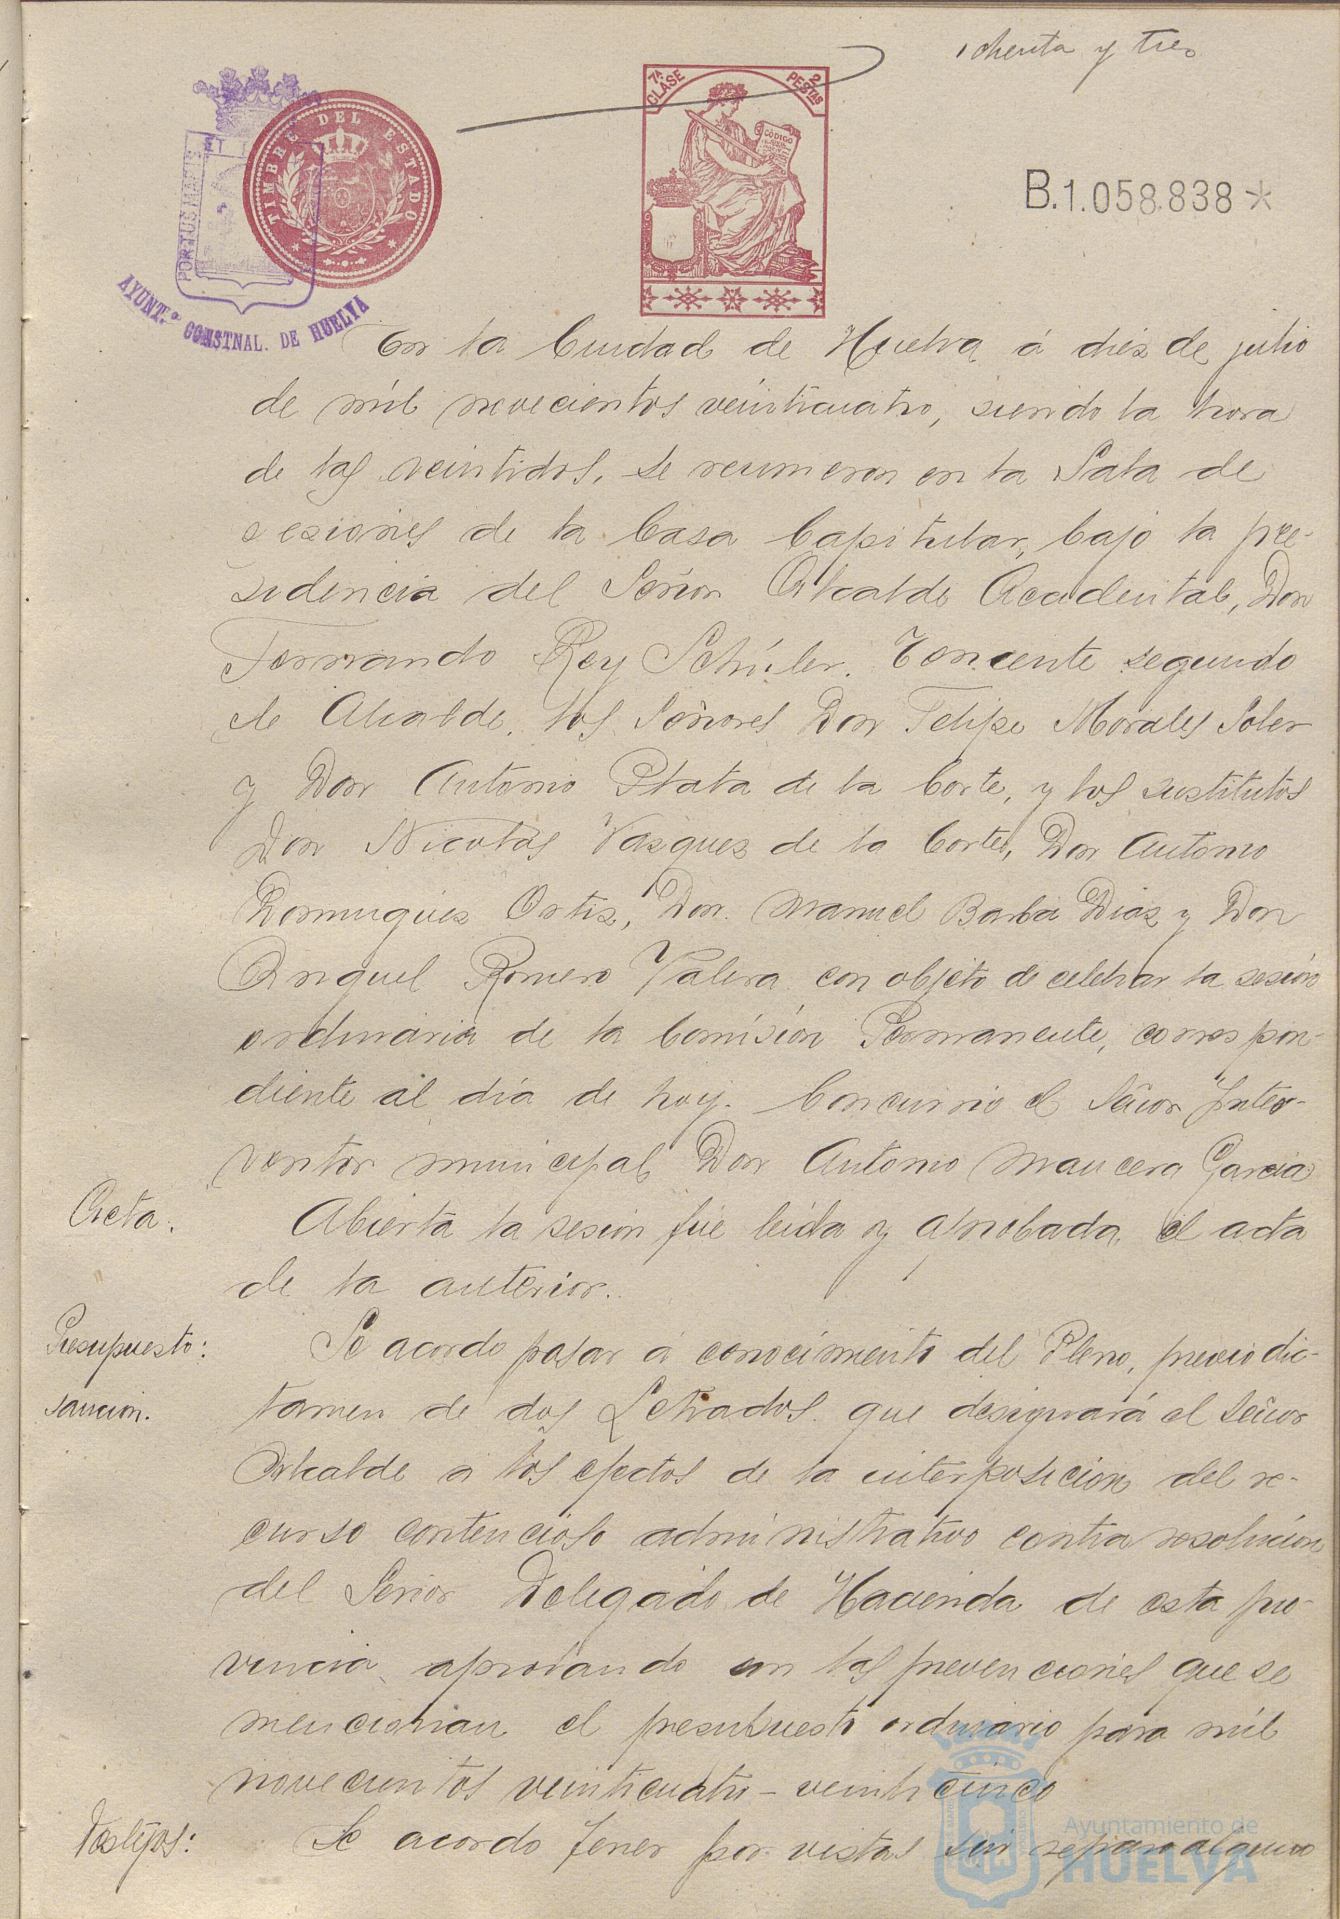 ochenta y tres
TIMBRE DEL ESTADO
7ª CLASE
2 PESTAS
CÓDIGO
PORTUS MARIS
ET T
AYUNT.º CONSTNAL. DE HUELVA
B.1.058.838*
En la Ciudad de Huelva á diez de julio
de mil novecientos veinticuatro, siendo la hora
de las veintidos, se reunieron en la Sala de
sesiones de la Casa Capitular, bajo la pre-
sidencia del Señor Alcalde Accidental, Don
Fernando Rey Schüler. Teniente segundo
de Alcalde, los Señores Don Felipe Morales Soler
y Don Antonio Plata de la Corte, y los sustitutos
Don Nicolas Vasquez de la Corte, Don Antonio
Dominguez Ortiz, Don Manuel Barba Diaz y Don
Angel Romero Valera con objeto de celebrar la sesión
ordinaria de la Comisión Permanente, correspon-
diente al día de hoy. Concurrio el Señor Inter-
ventor municipal Don Antonio Mancera Garcia
Acta. Abierta la sesión fué leida y aprobada el acta
de la anterior.
Presupuesto: Se acordo pasar á conocimiento del Pleno, previo dic-
sancion. tamen de dos Letrados que designará el Señor
Alcalde a los efectos de la interposicion del re-
curso contencioso administrativo contra resolucion
del Señor Delegado de Hacienda de esta pro-
vincia aprobando con las prevenciones que se
mencionan el presupuesto ordinario para mil
novecientos veinticuatro-veinticinco
Se acordo tener por vistas sin reparo alguno
Ayuntamiento de
HUELVA